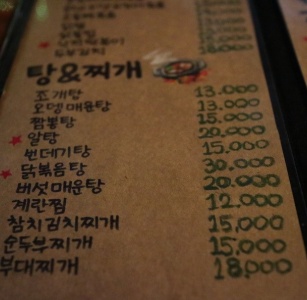 탕&찌개
조개탕 13.000
오뎅매운탕 13.000
짬뽕탕 15.000
알탕 20.000
번데기탕 15.000
닭볶음탕 30.000
버섯매운탕 20.000
계란찜 12.000
참치김치찌개 15,000
순두부찌개 15,000
부대찌개 18,000